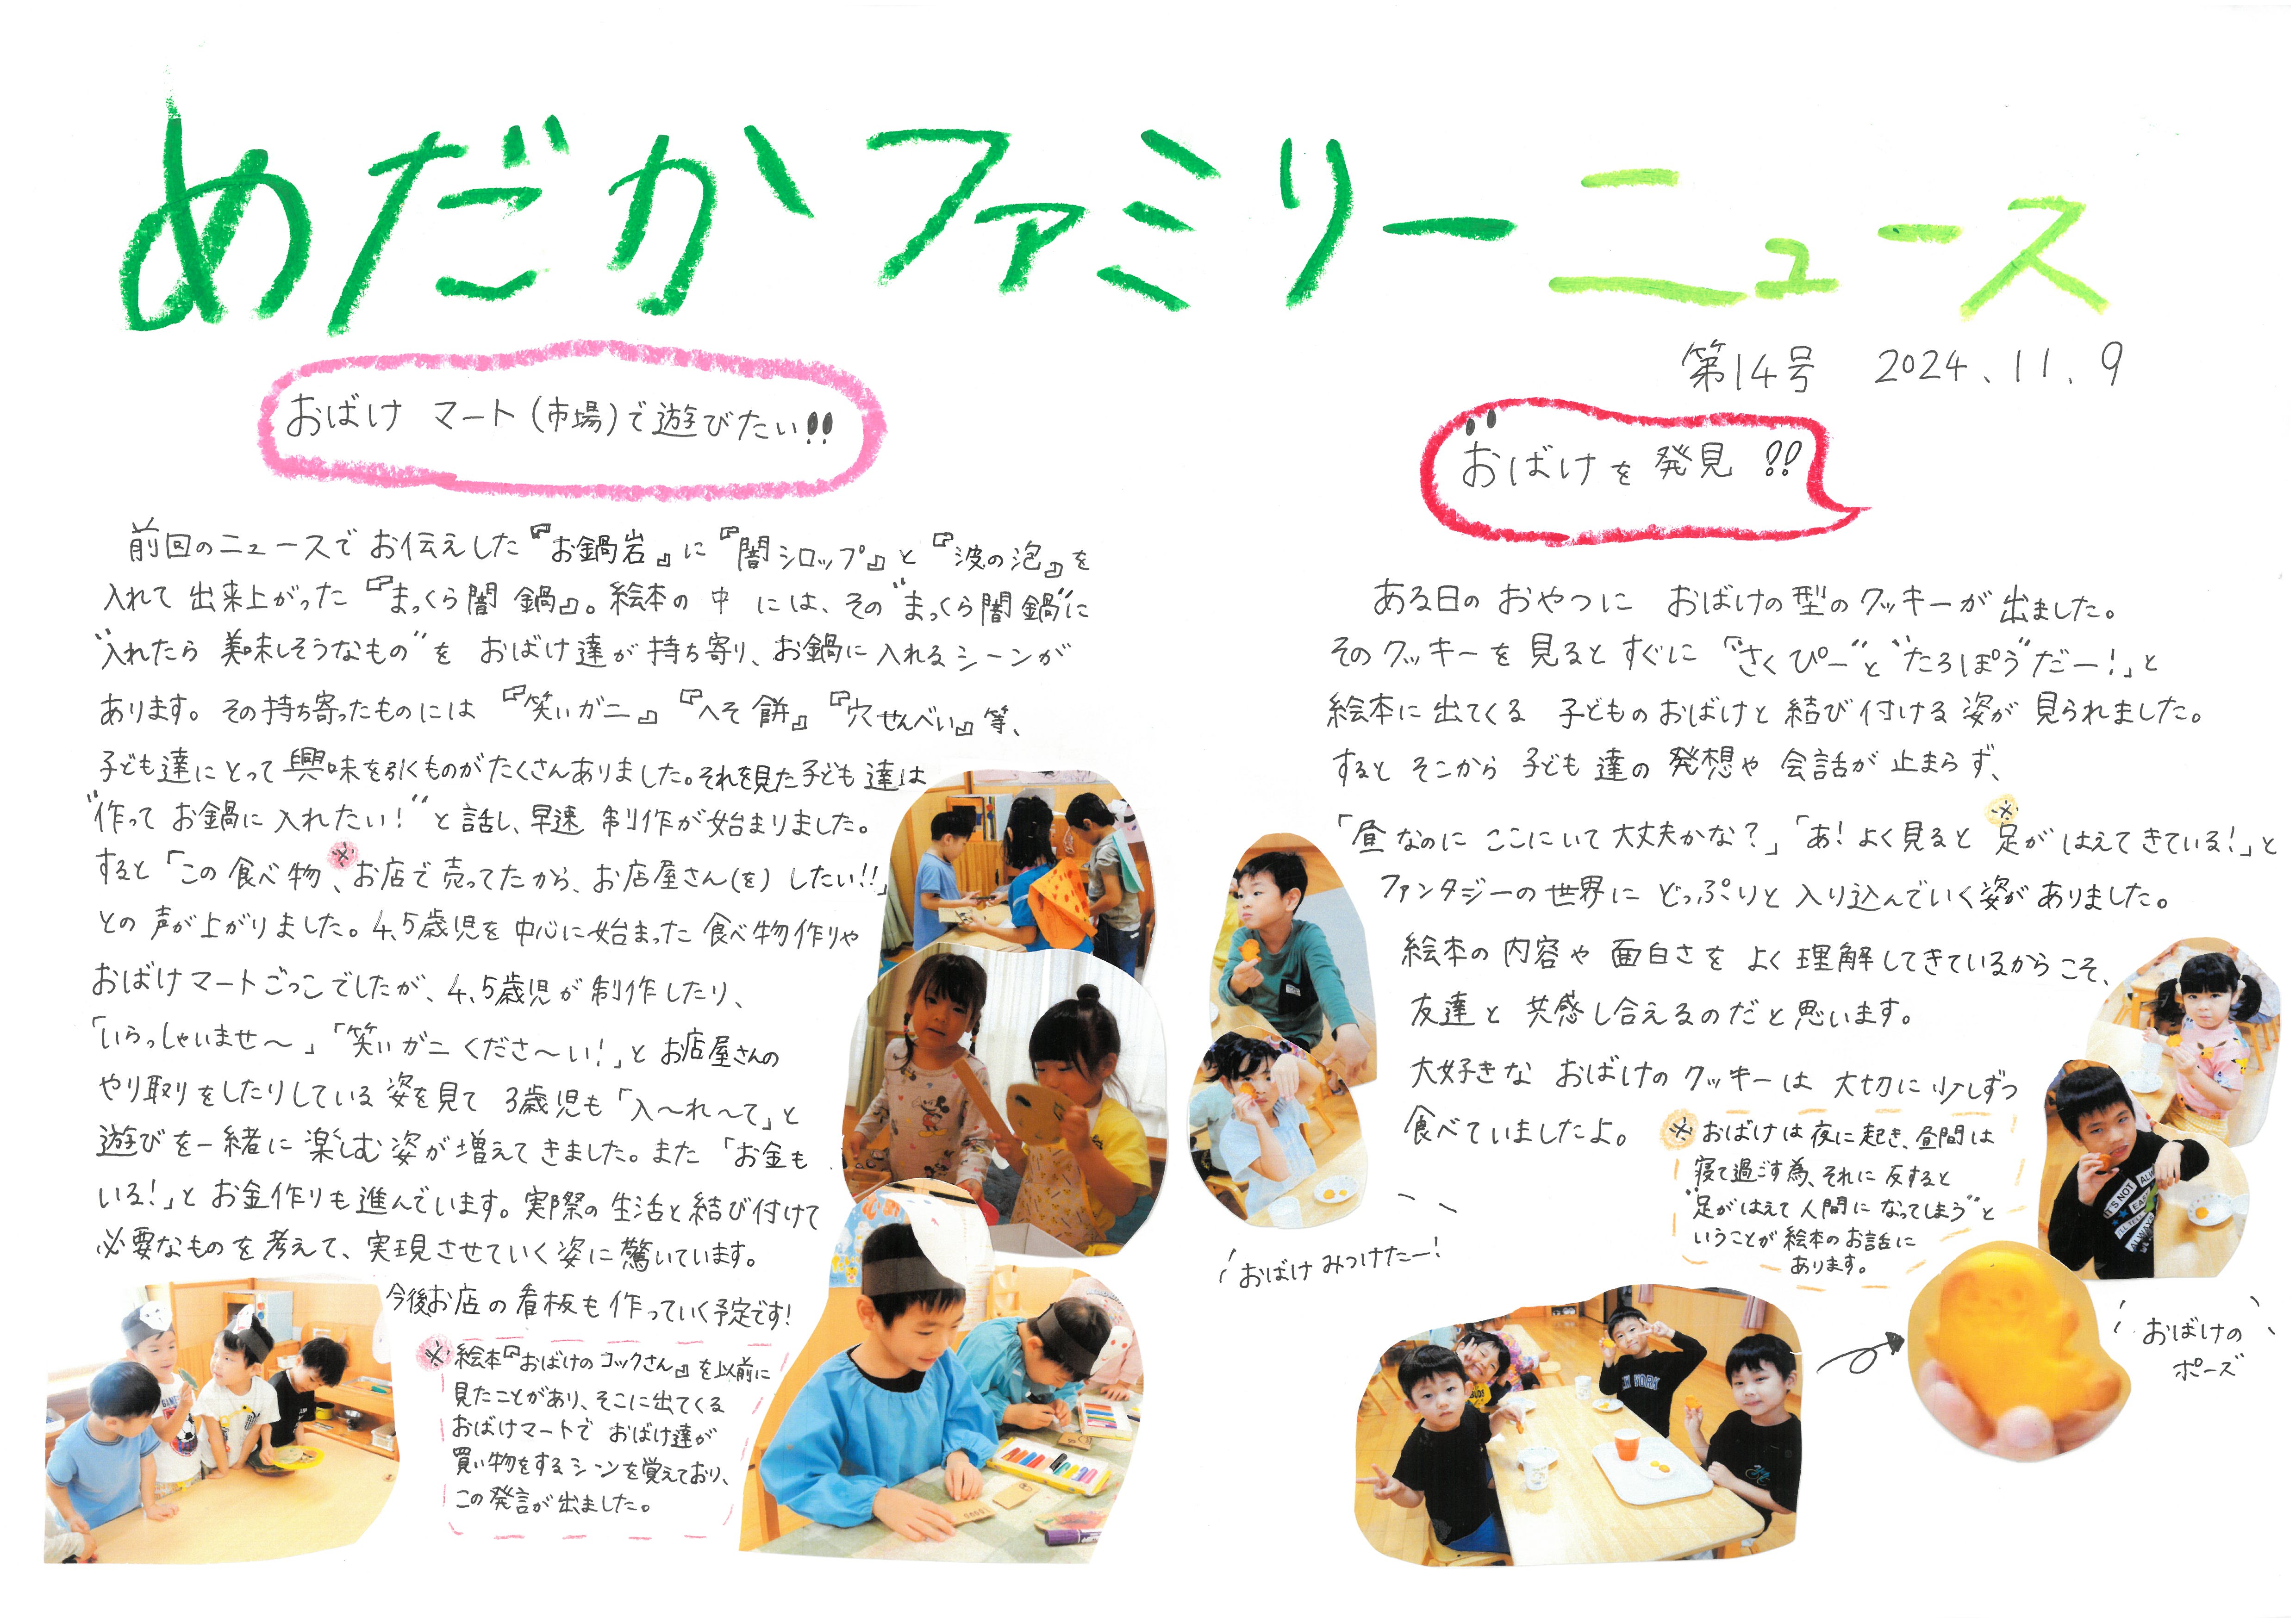 めだかファミリーニュース
第14号 2024.11.9
おばけ マート(市場)で遊びたい!!
前回のニュースでお伝えした『お鍋岩』に『闇シロップ』と『波の泡』を
入れて出来上がった『まっくら闇鍋』。絵本の中には、その"まっくら闇鍋"に
"入れたら美味しそうなもの"を おばけ達が持ち寄り、お鍋に入れるシーンが
あります。その持ち寄ったものには『笑いガニ』『へそ餅』『穴せんべい』等、
子ども達にとって興味を引くものがたくさんありました。それを見た子ども達は
"作ってお鍋に入れたい!"と話し、早速 制作が始まりました。
すると「この食べ物、※お店で売ってたから、お店屋さん(を)したい!!」
との声が上がりました。4、5歳児を中心に始まった食べ物作りや
おばけマートごっこでしたが、4、5歳児が制作したり、
「いらっしゃいませ〜」「笑いガニくださ〜い!」とお店屋さんの
やり取りをしたりしている姿を見て3歳児も「入〜れ〜て」と
遊びを一緒に楽しむ姿が増えてきました。また「お金も
いる!」とお金作りも進んでいます。実際の生活と結び付けて
必要なものを考えて、実現させていく姿に驚いています。
今後お店の看板も作っていく予定です!
※絵本『おばけのコックさん』を以前に
見たことがあり、そこに出てくる
おばけマートで おばけ達が
買い物をするシーンを覚えており、
この発言が出ました。
おばけを発見!!
ある日のおやつに おばけの型のクッキーが出ました。
そのクッキーを見るとすぐに「"さくぴー"と"たろぽう"だー!」と
絵本に出てくる 子どものおばけと結び付ける姿が見られました。
するとそこから子ども達の発想や会話が止まらず、
「昼なのにここにいて大丈夫かな?」「あ!よく見ると※足がはえてきている!」と
ファンタジーの世界にどっぷりと入り込んでいく姿がありました。
絵本の内容や面白さをよく理解してきているからこそ、
友達と共感し合えるのだと思います。
大好きなおばけのクッキーは大切に少しずつ
食べていましたよ。
※おばけは夜に起き、昼間は
寝て過ごす為、それに反すると
"足がはえて人間になってしまう"と
いうことが絵本のお話に
あります。
おばけみつけたー!
おばけの
ポーズ